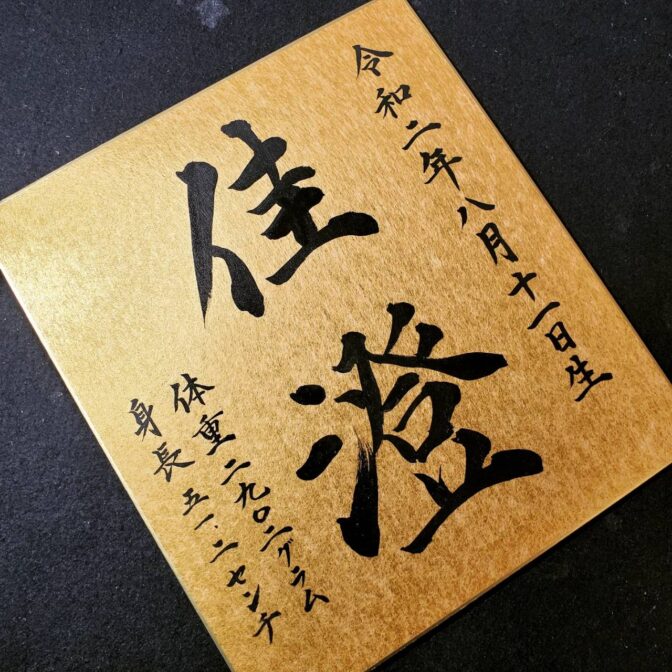 令和二年八月十一日生
佳澄
体重二九〇二グラム
身長五一.二センチ